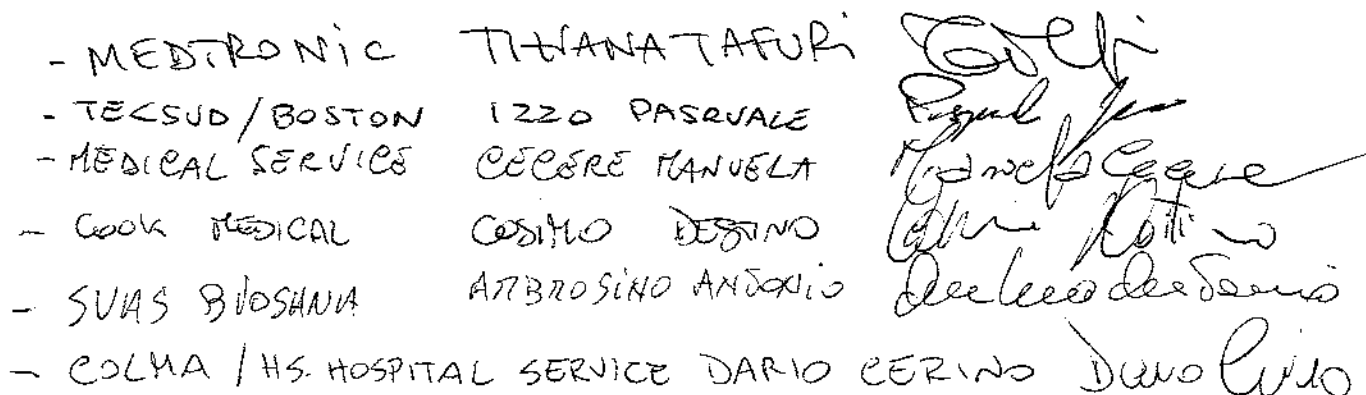 - MEDTRONIC TIZIANA TAFURI
- TECSUD / BOSTON IZZO PASQUALE
- MEDICAL SERVICE CECERE MANUELA Manuela Cecere
- COOK MEDICAL COSIMO DESTINO
- SVAS BIOSANA AMBROSINO ANTONIO
- COLMA / HS. HOSPITAL SERVICE DARIO CERINO Dario Cerino